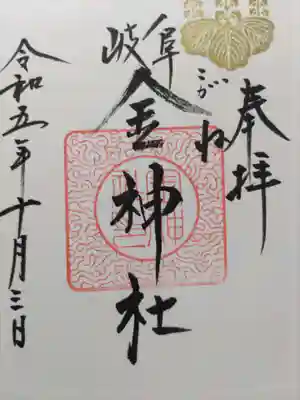 奉拝
こがね
岐阜
金神社
令和五年十月三日